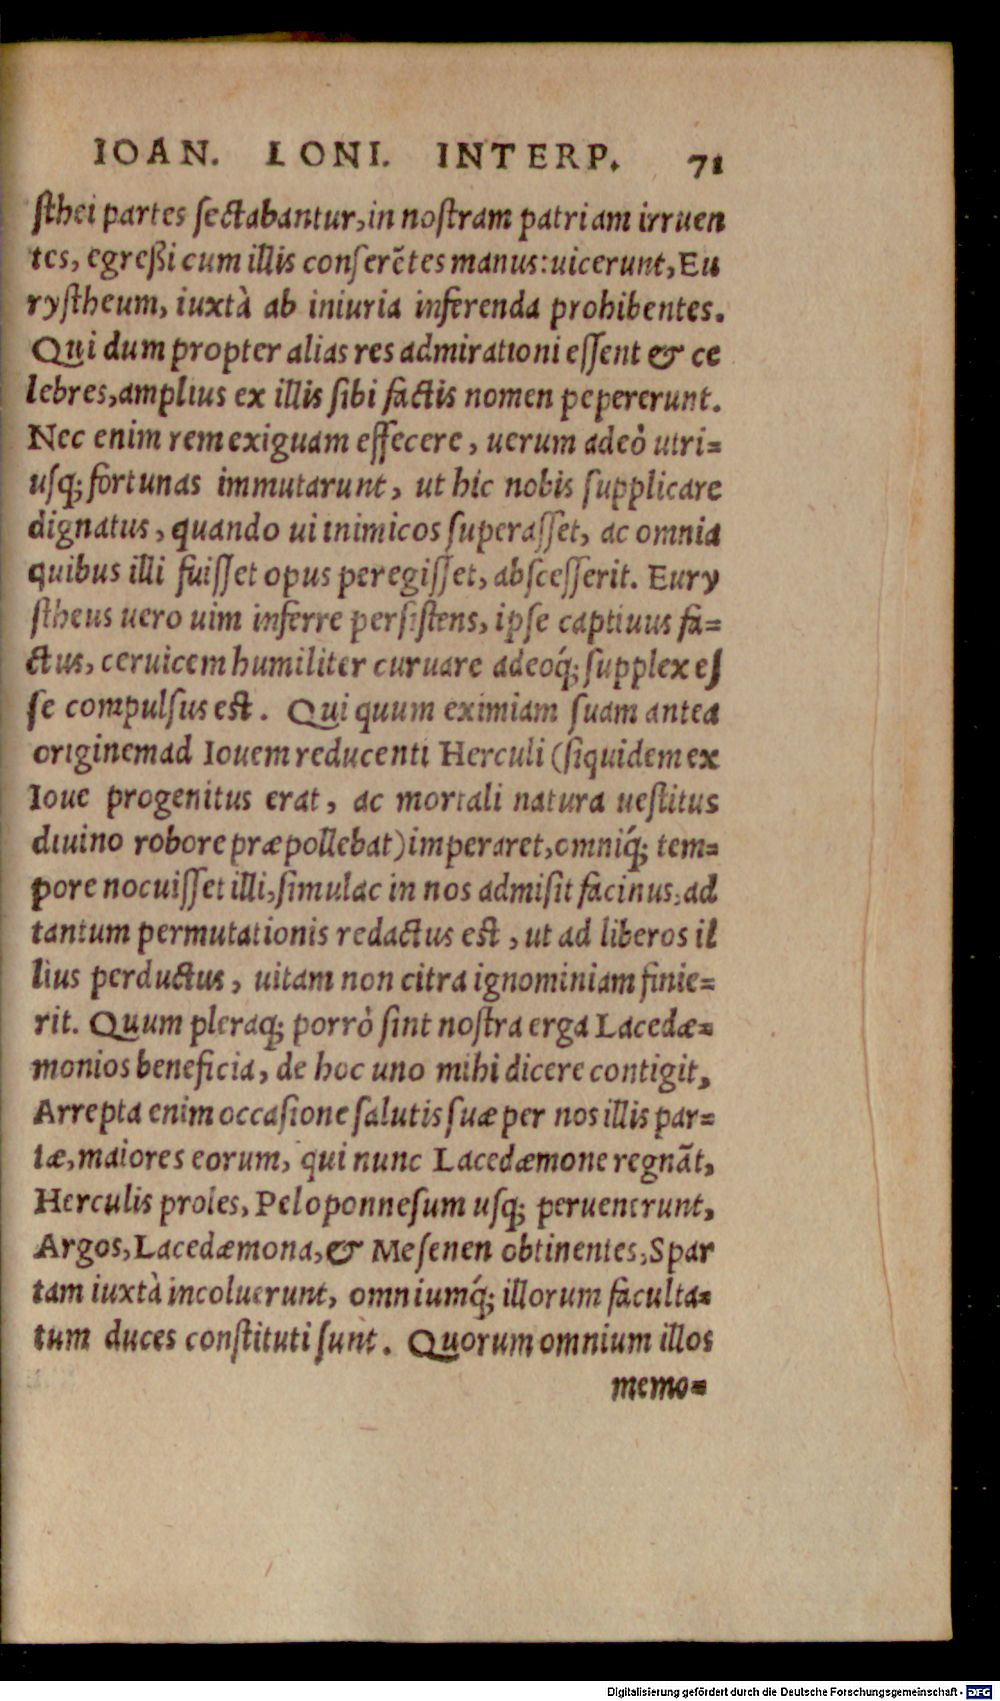 IOAN. LONI. INTERP. 71
ſthei partes ſectabantur, in noſtram patriam irruen
tes, egreßi cum illis conſerẽtes manus: uicerunt, Eu
ryſtheum, iuxtà ab iniuria inferenda prohibentes.
Qui dum propter alias res admirationi eſſent & ce
lebres, amplius ex illis ſibi factis nomen pepererunt.
Nec enim rem exiguam effecere, uerum adeò utri=
uſq; fortunas immutarunt, ut hic nobis ſupplicare
dignatus, quando ui inimicos ſuperaſſet, ac omnia
quibus illi fuiſſet opus peregiſſet, abſceſſerit. Eury
ſtheus uero uim inferre perſiſtens, ipſe captiuus fa=
ctus, ceruicem humiliter curuare adeoq́; ſupplex eſ
ſe compulſus est. Qui quum eximiam ſuam antea
originem ad Iouem reducenti Herculi (ſiquidem ex
Ioue progenitus erat, ac mortali natura ueſtitus
diuino robore præpollebat) imperaret, omniq́; tem=
pore nocuiſſet illi, ſimulac in nos admiſit facinus, ad
tantum permutationis redactus est, ut ad liberos il
lius perductus, uitam non citra ignominiam finie=
rit. Quum pleraq; porrò ſint noſtra erga Lacedæ=
monios beneficia, de hoc uno mihi dicere contigit,
Arrepta enim occaſione ſalutis ſuæ per nos illis par=
tæ, maiores eorum, qui nunc Lacedæmone regnãt,
Herculis proles, Peloponneſum uſq; peruenerunt,
Argos, Lacedæmona, & Meſenen obtinentes, Spar
tam iuxtà incoluerunt, omniumq́; illorum faculta=
tum duces conſtituti ſunt. Quorum omnium illos
memo=
Digitalisierung gefördert durch die Deutsche Forschungsgemeinschaft - DFG